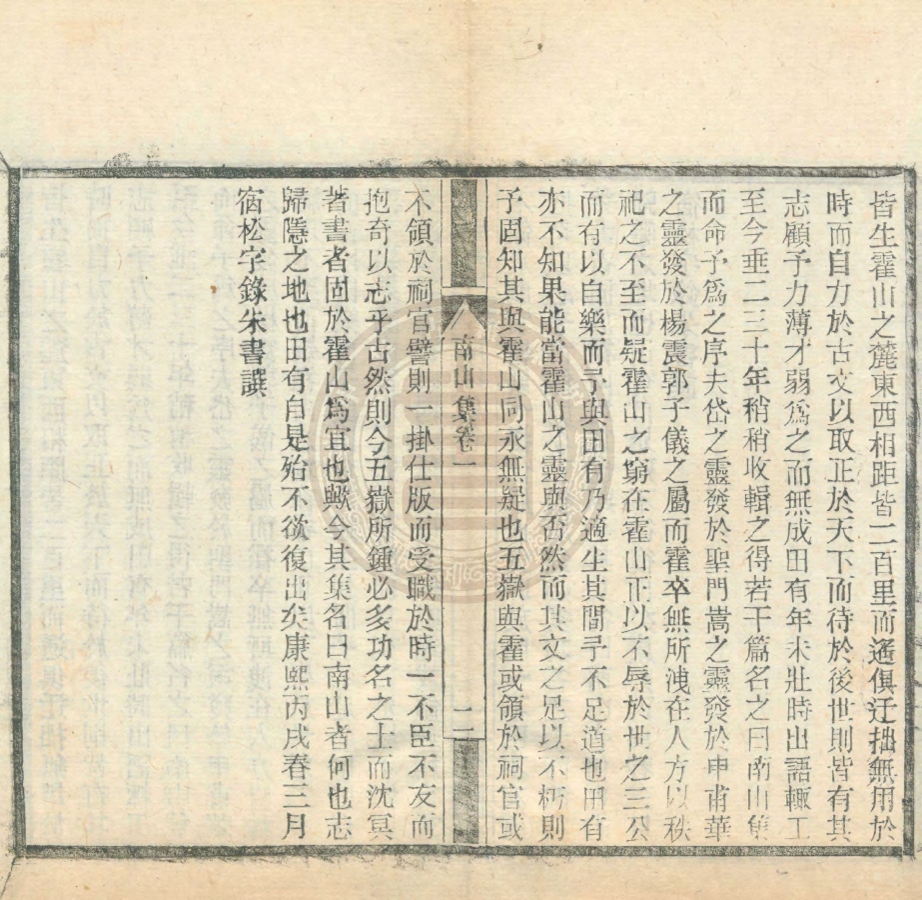 皆生霍山之麓東西相距皆二百里而遙俱迂拙無用於
時而自力於古文以取正於天下而待於後世則皆有其
志顧予力薄才弱爲之而無成田有年未壯時出語輒工
至今垂二三十年稍稍收輯之得若干篇名之曰南山集
而命予爲之序夫岱之靈發於聖門嵩之靈發於申甫華
之靈發於楊震郭子儀之屬而霍卒無所洩在人方以秩
祀之不至而疑霍山之窮在霍山正以不辱於世之三公
而有以自樂而予與田有乃適生其間予不足道也田有
亦不知果能當霍山之靈與否然而其文之足以不朽則
予固知其與霍山同永無疑也五嶽與霍或領於祠官或
南山集卷一
二
不領於祠官譬則一掛仕版而受職於時一不臣不友而
抱奇以志乎古然則今五嶽所鍾必多功名之士而沈冥
著書者固於霍山爲宜也歟今其集名曰南山者何也志
歸隱之地也田有自是殆不欲復出矣康熙丙戌春三月
宿松字錄朱書譔